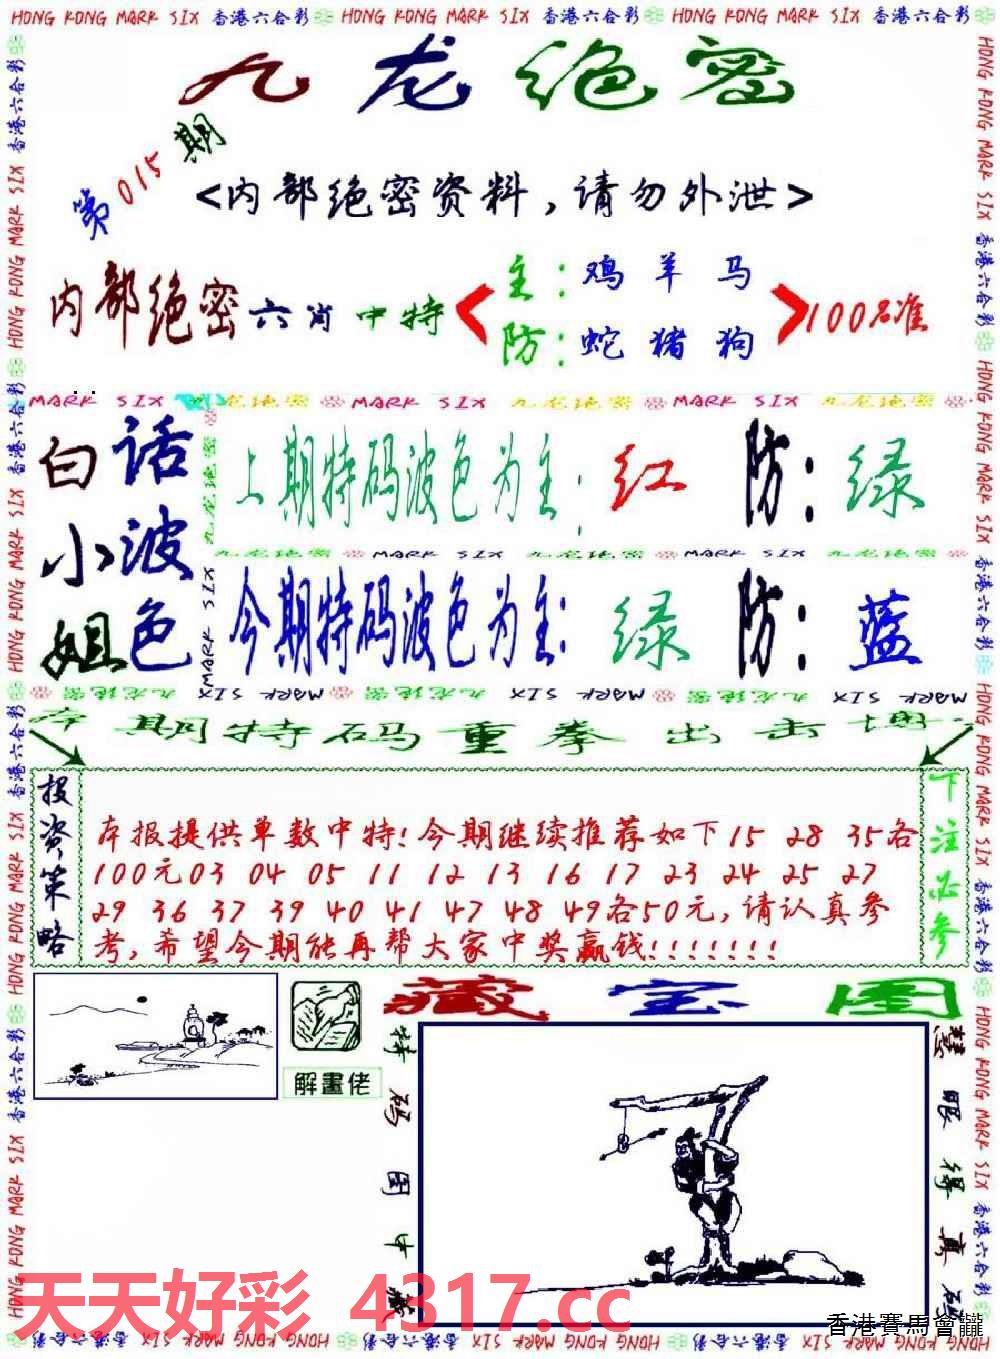 HONG KONG MARK SIX 香港六合彩 HONG KONG MARK SIX 香港六合彩 HONG KONG MARK SIX 香港六合彩
九龙绝密
第015期
<内部绝密资料，请勿外泄>
内部绝密六肖中特
主：鸡 羊 马
防：蛇 猪 狗
100%准
MARK SIX 九龙绝密 MARK SIX 九龙绝密 MARK SIX 九龙绝密
白小姐
话波色
上期特码波色为主：红 防：绿
九龙绝密 MARK SIX 九龙绝密 MARK SIX 九龙绝密
今期特码波色为主：绿 防：蓝
本期特码重拳出击
投资策略
本报提供单数中特！今期继续推荐如下15 28 35各
100元03 04 05 11 12 13 16 17 23 24 25 27
29 36 37 39 40 41 47 48 49各50元，请认真参
考，希望今期能再帮大家中奖赢钱！！！！！！！
下注必参
解畫佬
藏宝图
特码图中藏
慧眼得真码
天天好彩 4317.cc
香港賽馬會